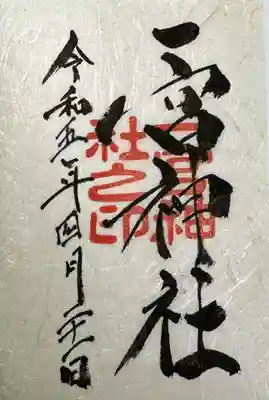 二宮神社
令和五年四月二十一日
二宮神
社之印